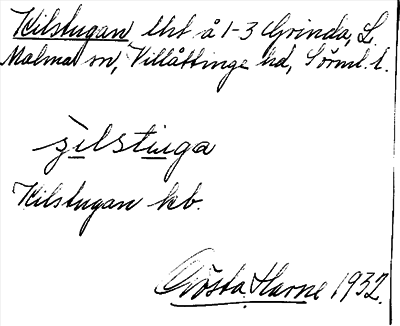 Kilstugan, lht å 1-3 Grinda, L.
Malma sn, Villåttinge hd, Sörml. l.
ʒilstuga
Kilstugan kb.
Gösta Harne 1932.